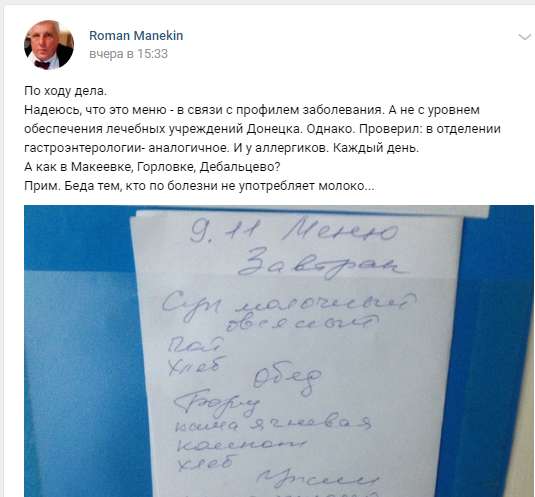 Roman Manekin
вчера в 15:33
По ходу дела.
Надеюсь, что это меню - в связи с профилем заболевания. А не с уровнем
обеспечения лечебных учреждений Донецка. Однако. Проверил: в отделении
гастроэнтерологии- аналогичное. И у аллергиков. Каждый день.
А как в Макеевке, Горловке, Дебальцево?
Прим. Беда тем, кто по болезни не употребляет молоко...
9.11 Меню
Завтрак
Суп молочный
овсяный
чай
хлеб
Обед
Борщ
каша ячневая
компот
хлеб
Ужин